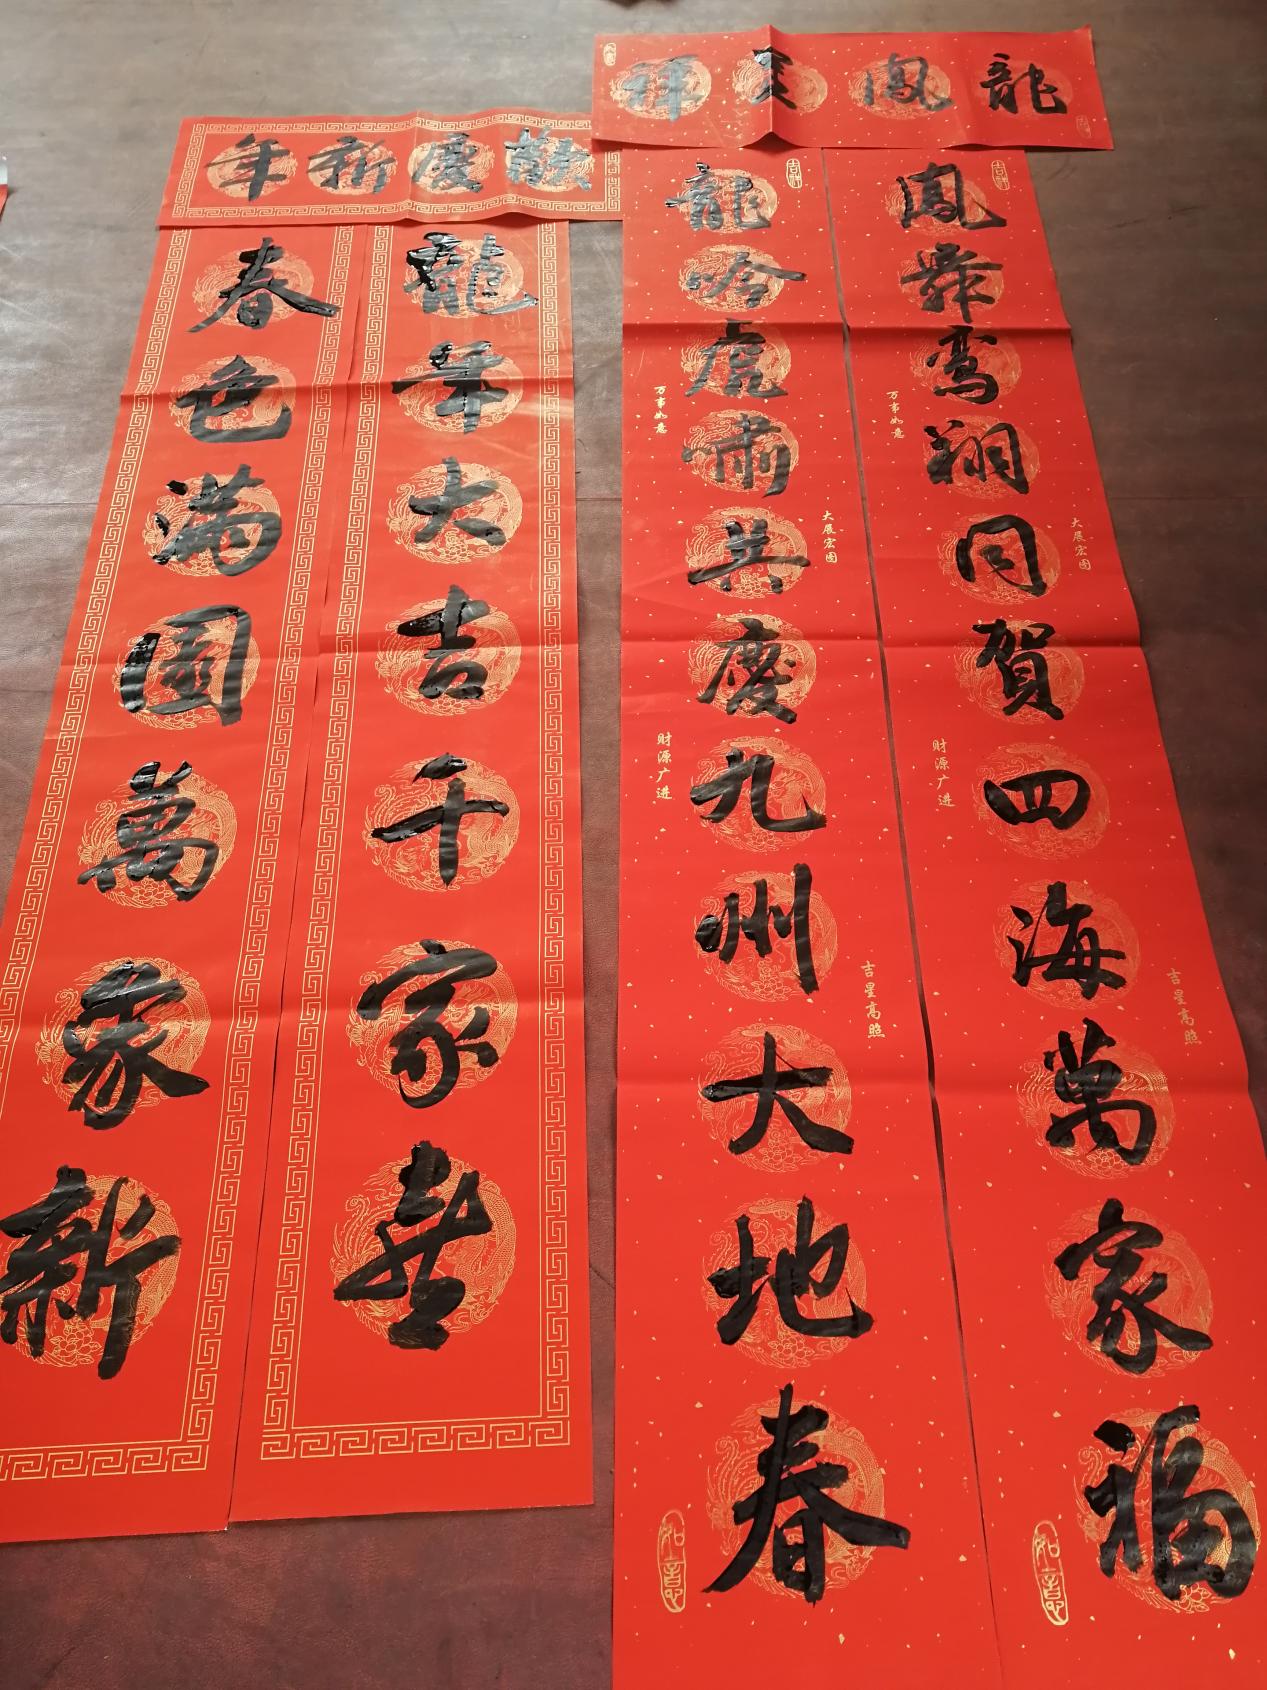 龍鳳呈祥
鳳舞鸾翔同賀四海萬家福
吉祥
万事如意
大展宏图
财源广进
吉星高照
如意
龍吟虎啸共慶九州大地春
吉祥
万事如意
大展宏图
财源广进
吉星高照
如意
歡慶新年
龍年大吉千家喜
春色满園萬象新